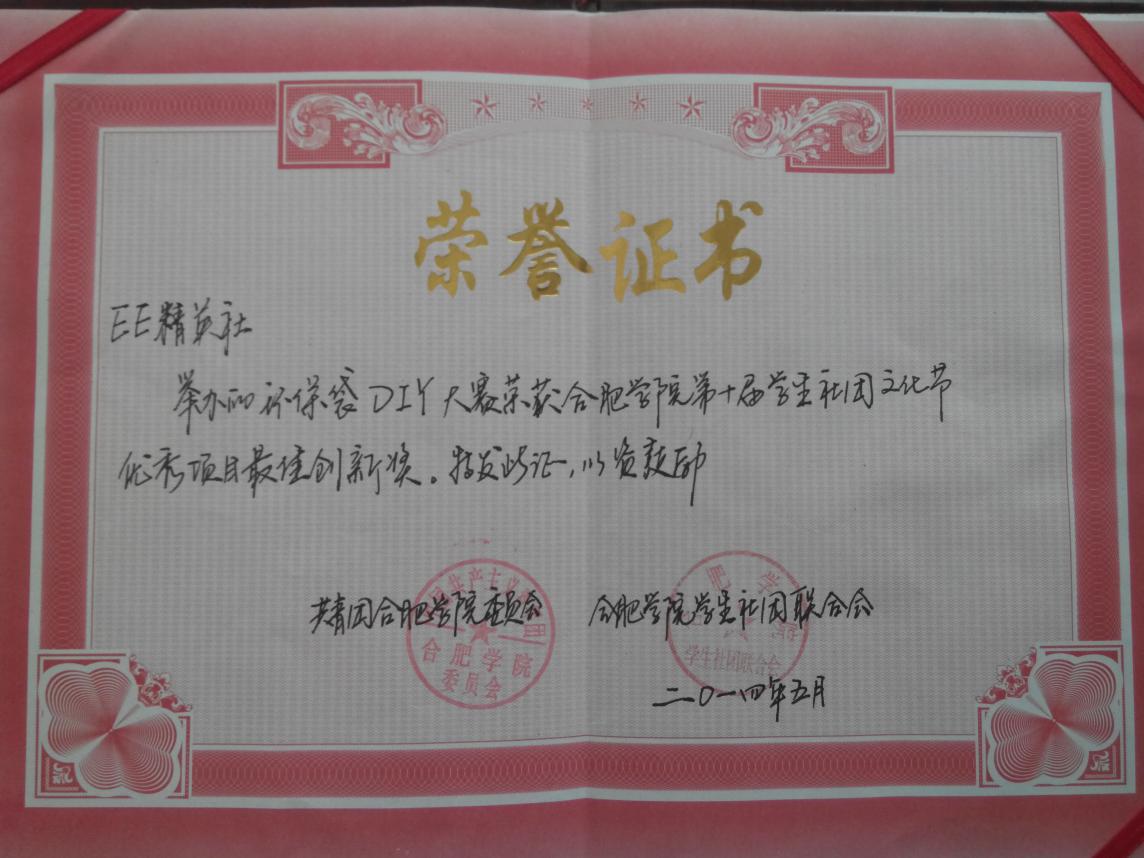 荣誉证书
EE精英社
举办的环保袋DIY大赛荣获合肥学院第十届学生社团文化节
优秀项目最佳创新奖。特发此证,以资鼓励
共青团合肥学院委员会 合肥学院学生社团联合会
合肥学院
委员会
学生社团联合会
二〇一四年五月